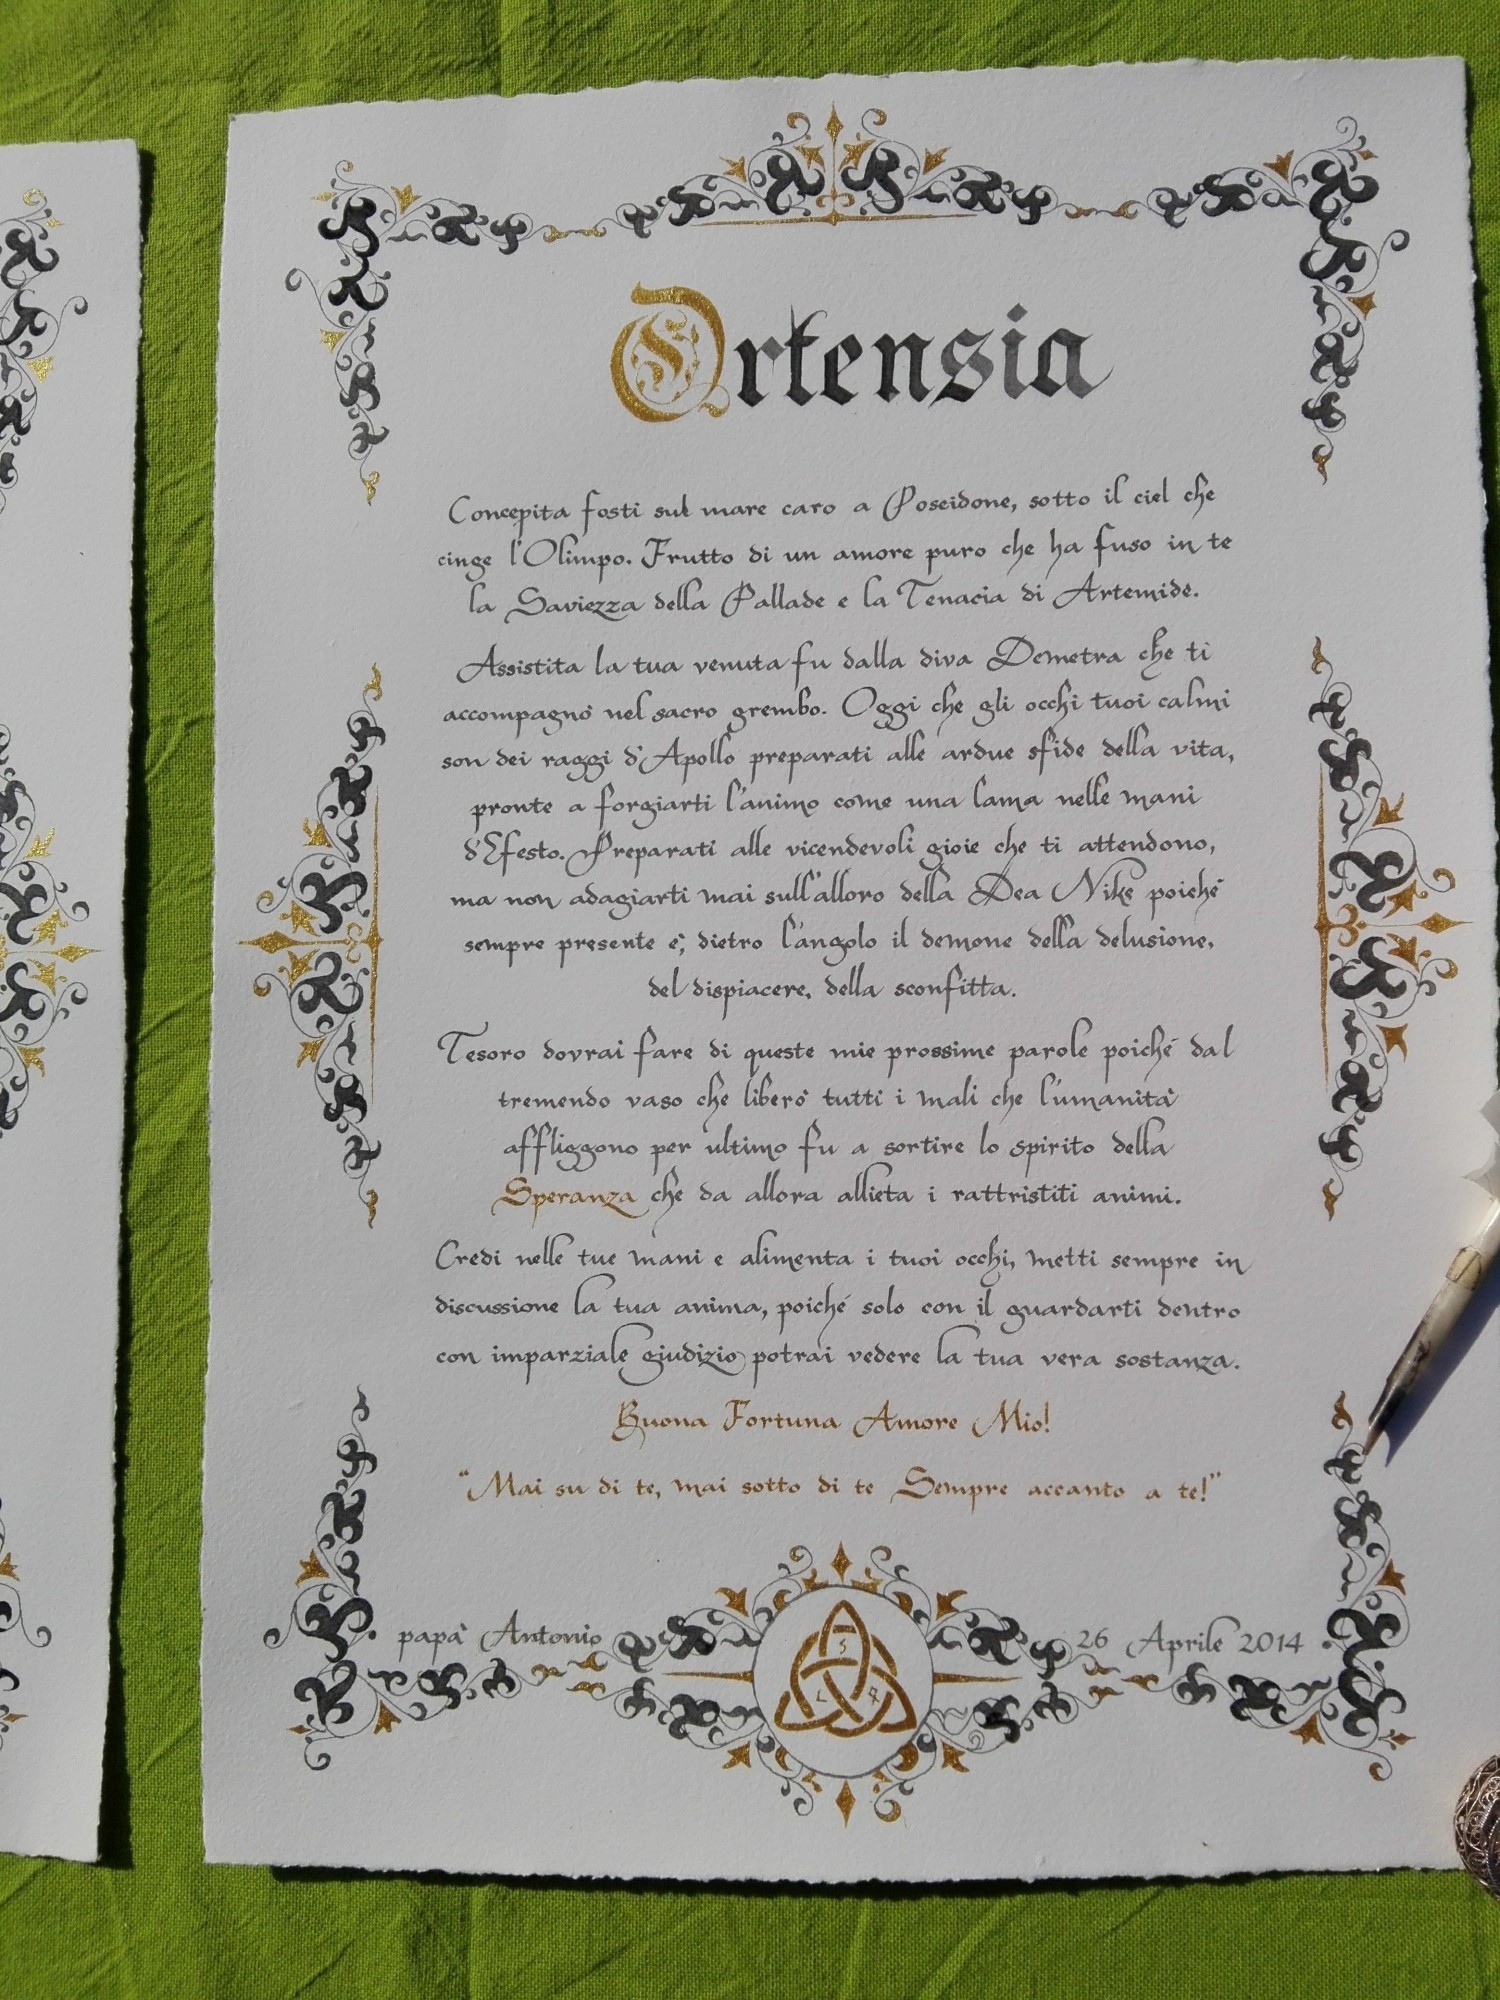 Ortensia
Concepita fosti sul mare caro a Poseidone, sotto il ciel che
cinge l'Olimpo. Frutto di un amore puro che ha fuso in te
la Saviezza della Pallade e la Tenacia di Artemide.
Assistita la tua venuta fu dalla diva Demetra che ti
accompagnò nel sacro grembo. Oggi che gli occhi tuoi calmi
son dei raggi d'Apollo preparati alle ardue sfide della vita,
pronte a forgiarti l'animo come una lama nelle mani
d'Efesto. Preparati alle vicendevoli gioie che ti attendono,
ma non adagiarti mai sull'alloro della Dea Nike poiché
sempre presente è, dietro l'angolo il demone della delusione,
del dispiacere, della sconfitta.
Tesoro dovrai fare di queste mie prossime parole poiché dal
tremendo vaso che liberò tutti i mali che l'umanità
affliggono per ultimo fu a sortire lo spirito della
Speranza che da allora allieta i rattristiti animi.
Credi nelle tue mani e alimenta i tuoi occhi, metti sempre in
discussione la tua anima, poiché solo con il guardarti dentro
con imparziale giudizio potrai vedere la tua vera sostanza.
Buona Fortuna Amore Mio!
"Mai su di te, mai sotto di te Sempre accanto a te!"
papà Antonio
26 Aprile 2014